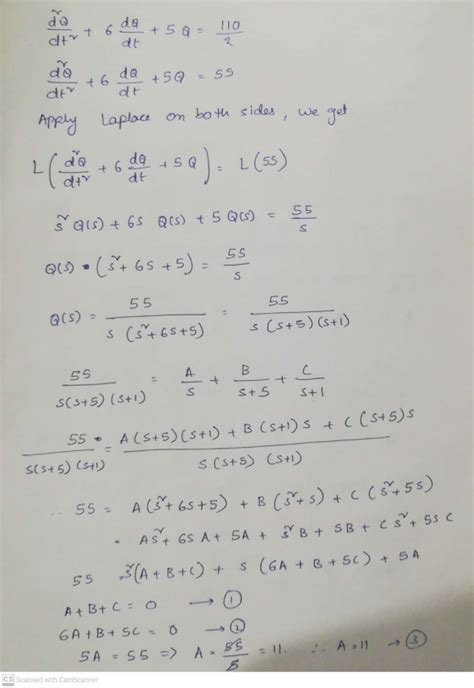 d²Q/dt² + 6 dQ/dt + 5Q = 110/2
d²Q/dt² + 6 dQ/dt + 5Q = 55
Apply Laplace on both sides, we get
L(d²Q/dt² + 6 dQ/dt + 5Q) = L(55)
s² Q(s) + 6s Q(s) + 5 Q(s) = 55/s
Q(s) • (s² + 6s + 5) = 55/s
Q(s) = 55/(s (s² + 6s + 5)) = 55/(s (s+5) (s+1))
55/(s(s+5) (s+1)) = A/s + B/(s+5) + C/(s+1)
55/(s(s+5) (s+1)) = (A (s+5) (s+1) + B (s+1) s + C (s+5) s)/(s (s+5) (s+1))
∴ 55 = A (s² + 6s + 5) + B (s² + s) + C (s² + 5s)
= As² + 6s A + 5A + s² B + sB + C s² + 5s C
55 = s²(A + B + C) + s (6A + B + 5C) + 5A
A + B + C = 0 → ①
6A + B + 5C = 0 → ②
5A = 55 => A = 55/5 = 11. ∴ A = 11 → ③
CS Scanned with CamScanner